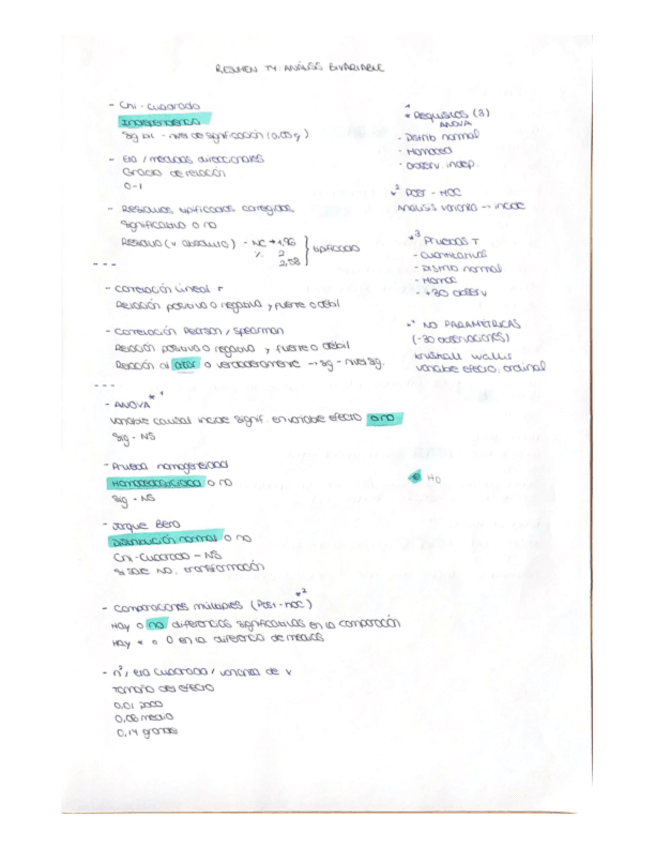 RESUMEN T4 ANÁLISIS BIVARIABLE
- Chi-cuadrado
Independencia
Sig bil - nivel de significación (0,05 y )
- Eta / medidas direccionales
Grado de relación
0-1
- Residuos tipificados corregidos
Significativo o no
Residuo (v absoluto) - NC 1,96
2
2,58
tipificado
- Correlación lineal r
Relación positiva o negativa y fuerte o débil
- Correlación Pearson / Spearman
Relación positiva o negativa y fuerte o débil
Relación al azar o verdaderamente → sg - nivel sg.
- ANOVA *1
variable causal incide signif. en variable efecto o no
Sig - NS
- Prueba homogeneidad
Homocedasticidad o no
Sig - NS
- Jarque Bera
Distribución normal o no
Chi-cuadrado - NS
Si sale NO, transformación
- Comparaciones múltiples (Post-hoc) *2
Hay o no diferencias significativas en la comparación
Hay + o 0 en la diferencia de medias
- n², eta cuadrado / varianza de v
Tamaño del efecto
0,01
0,06 medio
0,14 grande
* Requisitos (3)
ANOVA
- Distrib normal
- Homoced
- observ. indep.
2 POST-HOC
Análisis variable → incide
*3 Pruebas T
- Cuantitativas
- Distrib normal
- Homoc
- +30 observ
NO PARAMÉTRICAS
(-30 observaciones)
Kruskall Wallis
variable efecto, ordinal
H0